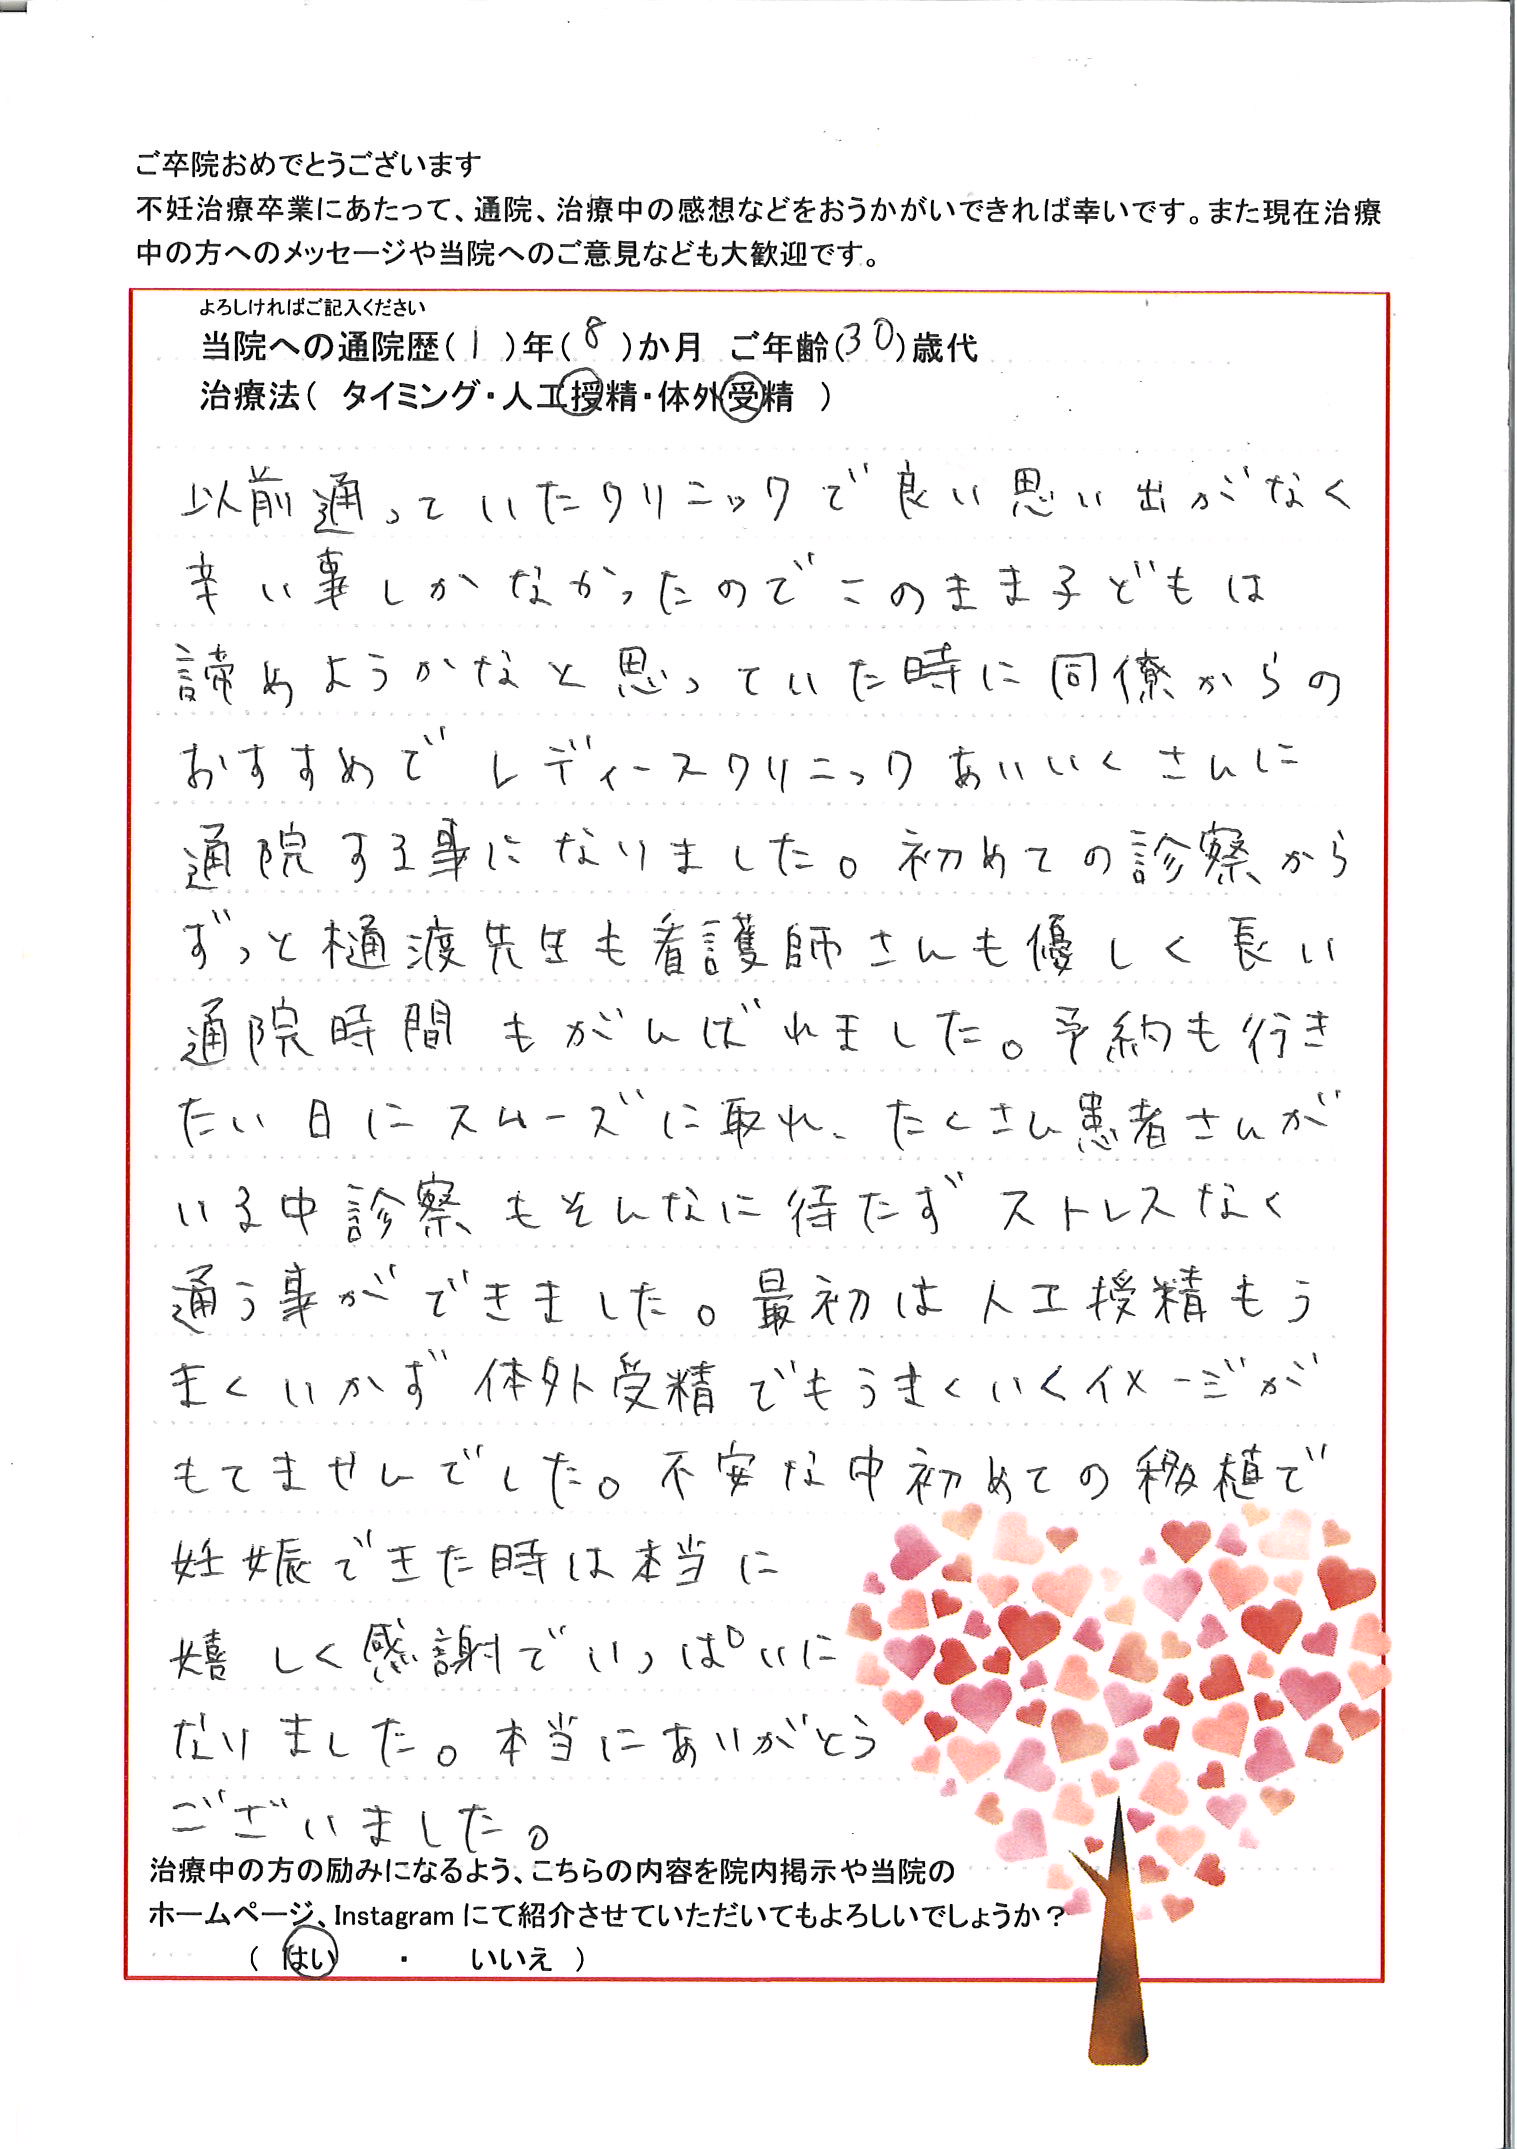 ご卒院おめでとうございます
不妊治療卒業にあたって、通院、治療中の感想などをおうかがいできれば幸いです。また現在治療
中の方へのメッセージや当院へのご意見なども大歓迎です。
よろしければご記入ください
当院への通院歴(1)年(8)か月 ご年齢(30)歳代
治療法( タイミング・人工授精・体外受精 )
以前通っていたクリニックで良い思い出がなく
辛い事しかなかったのでこのまま子どもは
諦めようかなと思っていた時に同僚からの
おすすめでレディースクリニックあいいくさんに
通院する事になりました。初めての診察から
ずっと樋渡先生も看護師さんも優しく長い
通院時間もがんばれました。予約も行き
たい日にスムーズに取れ、たくさん患者さんが
いる中診察もそんなに待たずストレスなく
通う事ができました。最初は人工授精もう
まくいかず体外受精でもうまくいくイメージが
もてませんでした。不安な中初めての移植で
妊娠できた時は本当に
嬉しく感謝でいっぱいに
なりました。本当にありがとう
ございました。
治療中の方の励みになるよう、こちらの内容を院内掲示や当院の
ホームページ、Instagramにて紹介させていただいてもよろしいでしょうか?
( はい ・ いいえ )